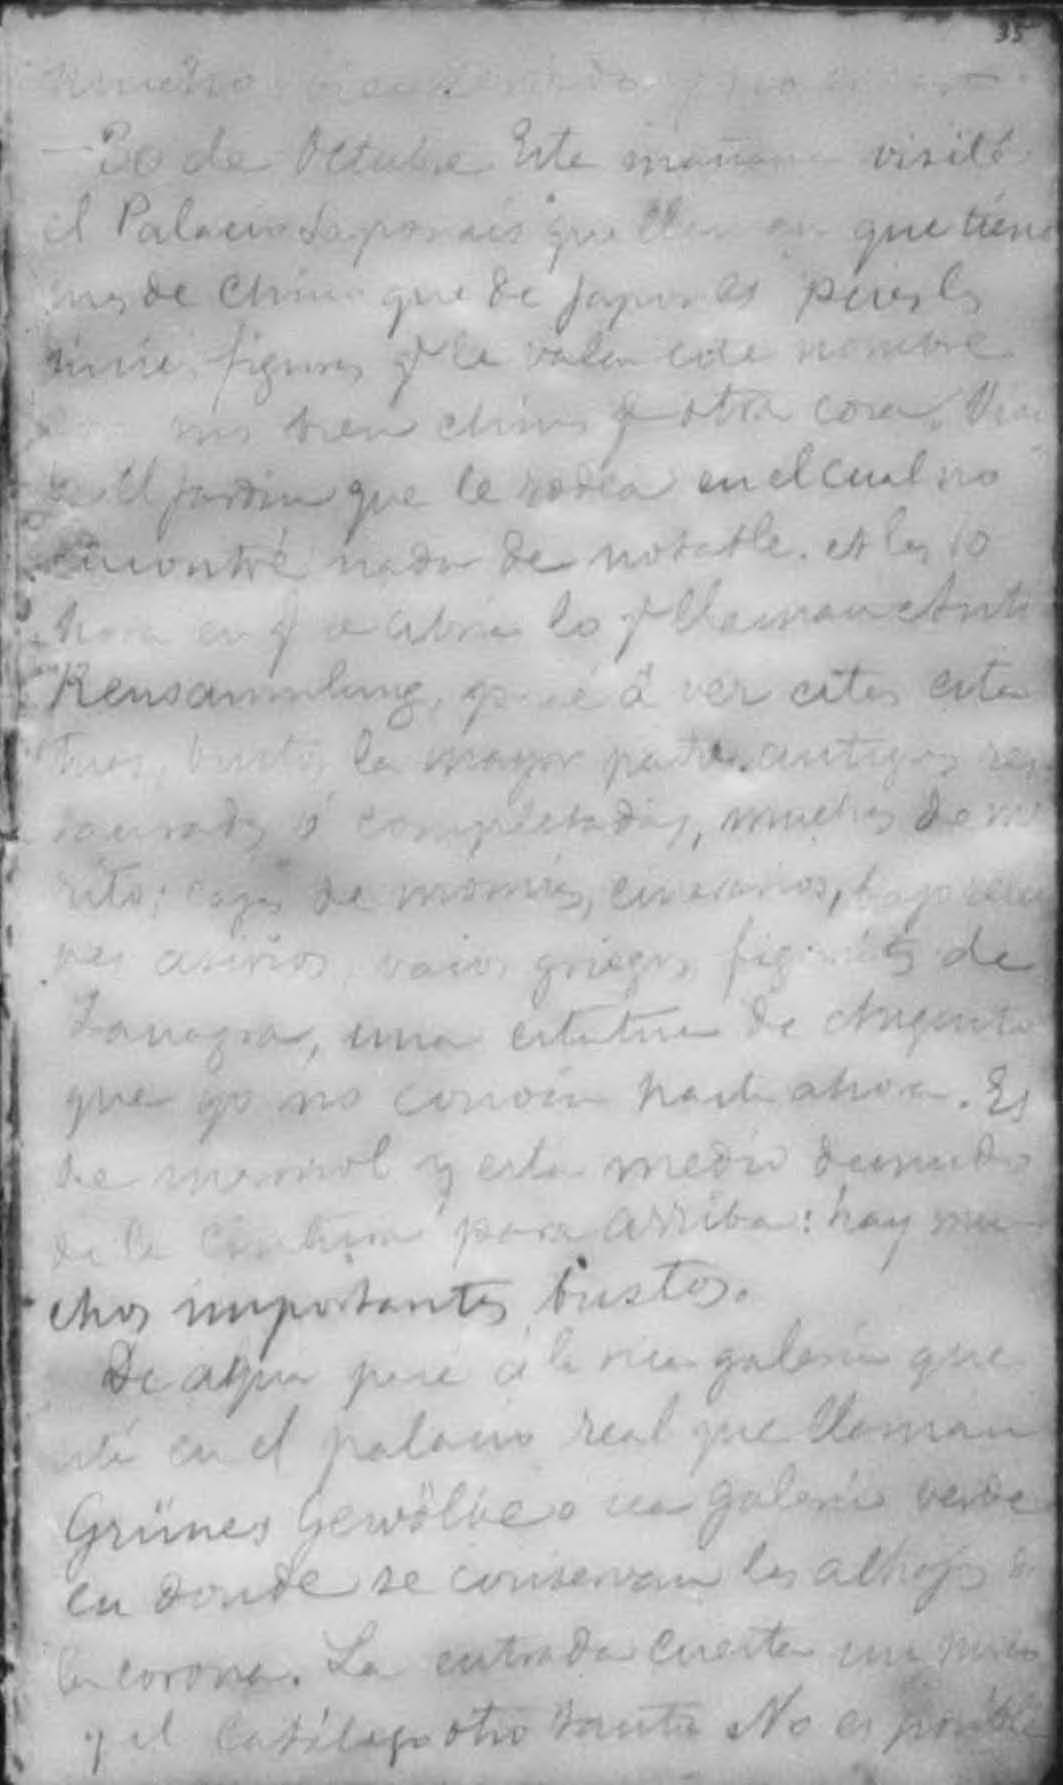 35
mucho
— 30 de Octubre Este mañana visité
el Palacio Japonais que llaman que tiene
mas de Chino que de Japonés pues las
figuras q le valen ese nombre
mas bien chinas q otra cosa.
el jardin que le rodea en el cual no
encontré nada de notable. A las 10
hora en q se abria lo q llaman Anti
kensammlung, pasé á ver estas esta
tuas, bustos, la mayor parte antiguos res
taurados ó completados, muchos de mé
rito; cajas de momias, cinerarios, bajo relie
ves asirios, vasos griegos, figuritas de
Tanagra, una estatua de Augusto
que yo no conocia hasta ahora. Es
de marmol y esta medio desnudo
de la cintura para arriba: hay mu
chos importantes bustos.
De aqui pasé á la rica galeria que
está en el palacio real que llaman
Grünes Gewölbe o sea galeria verde
en donde se conservan las alhajas de
la corona. La entrada cuesta un marco
y el catálogo otro tanto No es posible